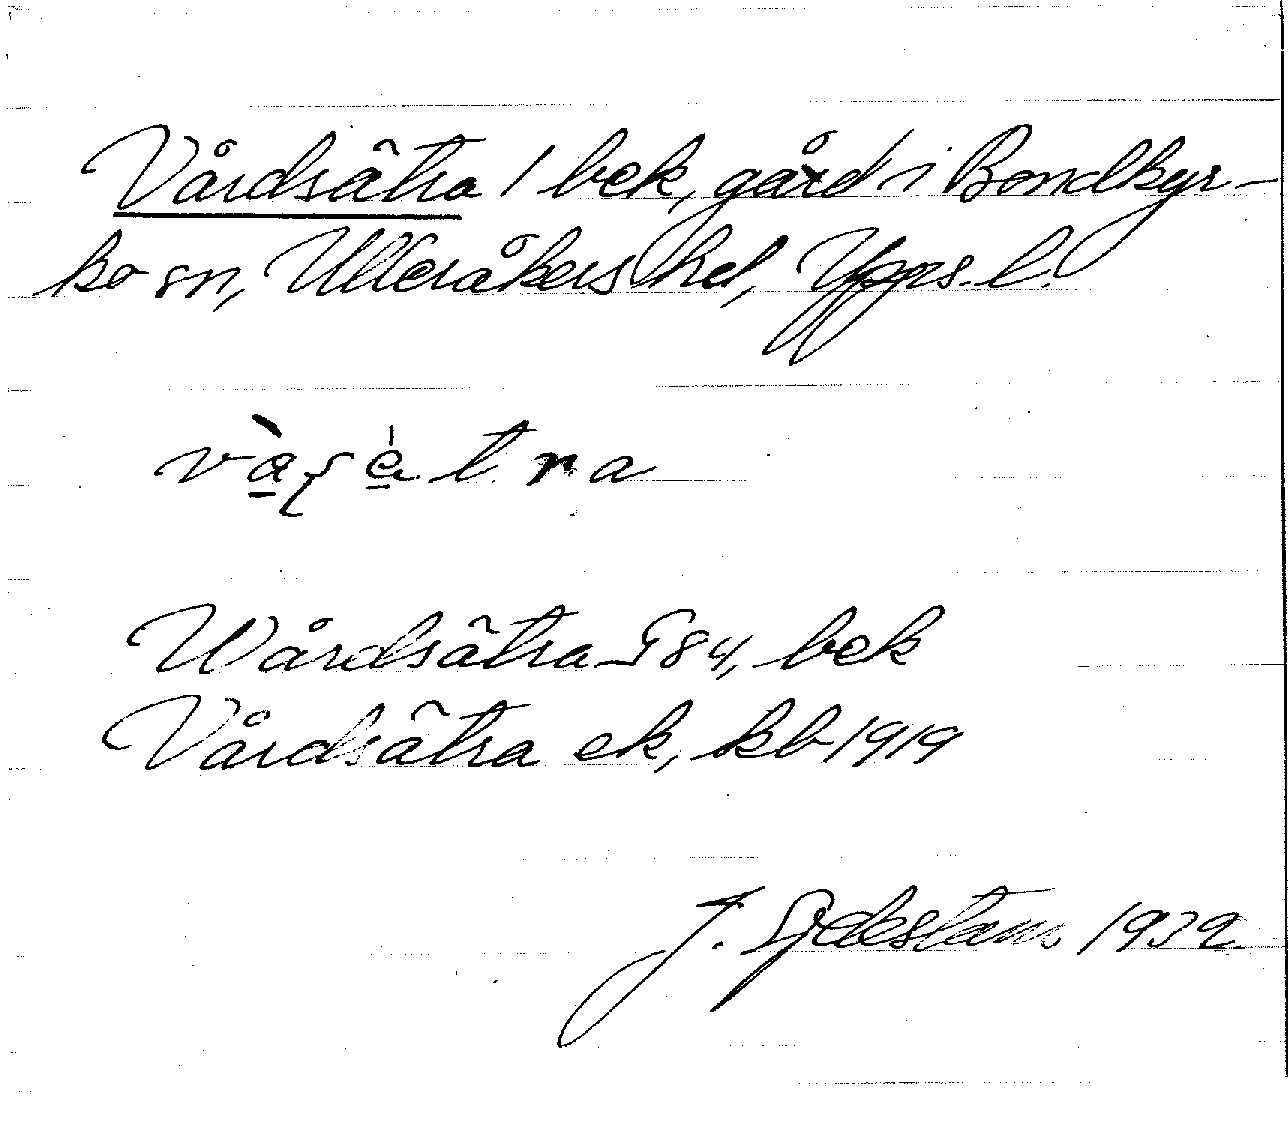 Vårdsätra / bek, gård i Bondkyr-
ko sn, Ulleråkers hd, Upps. l.
Wårdsätra G84, bek
Vårdsätra ek, kb 1919
J. 1932